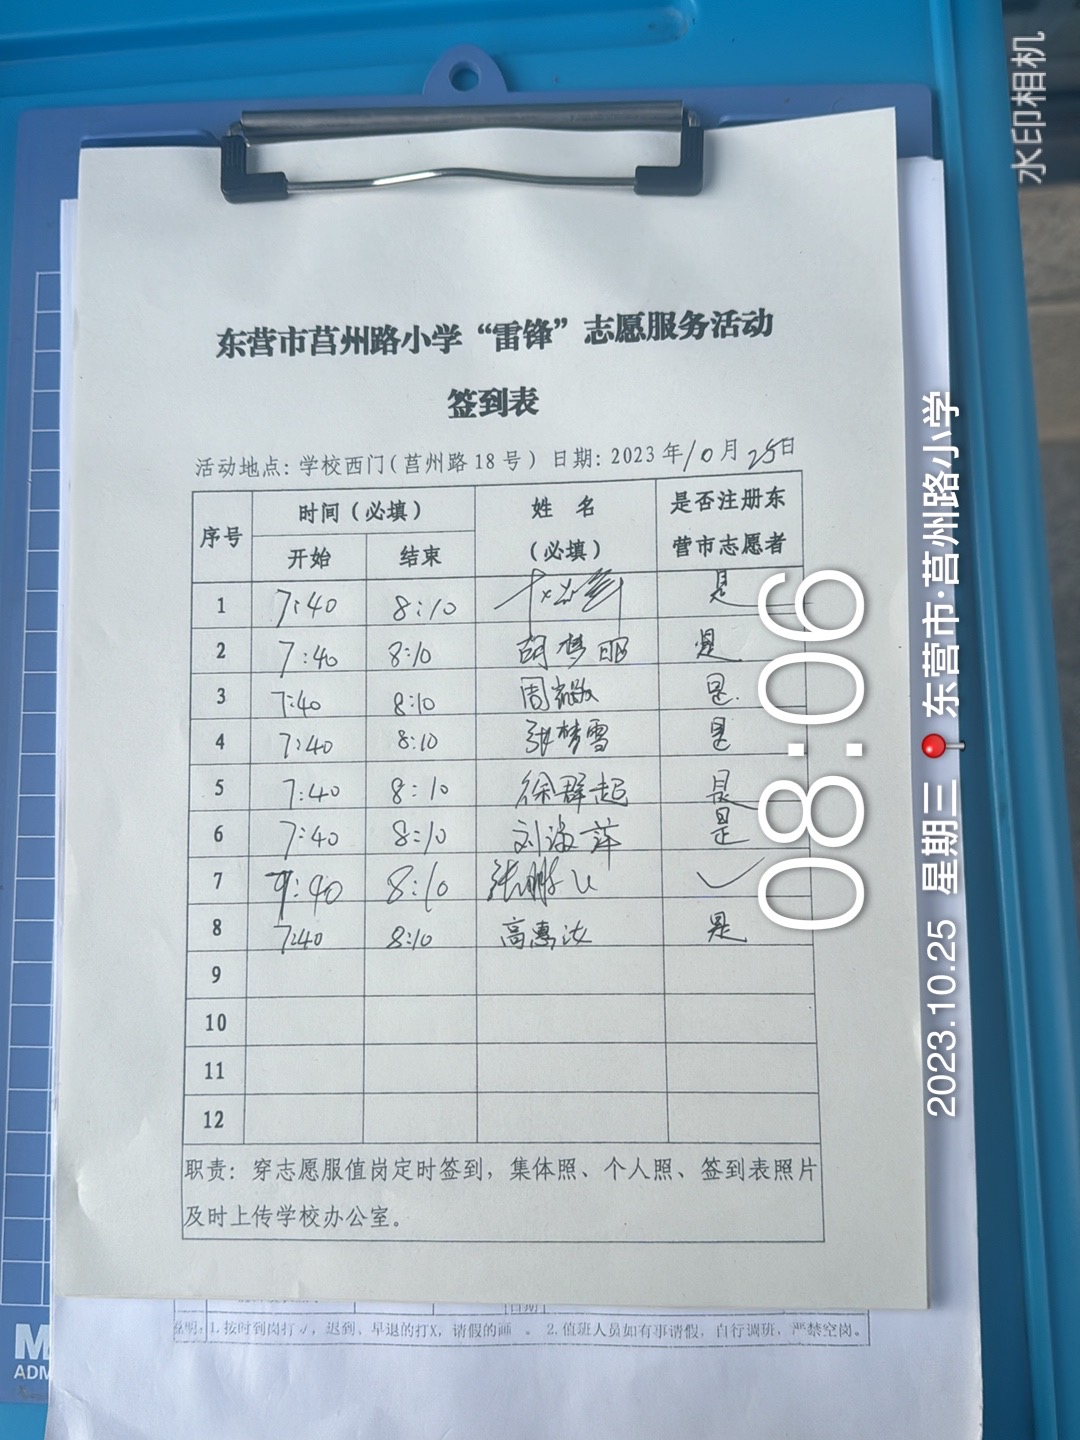 水印相机
东营市莒州路小学“雷锋”志愿服务活动
签到表
活动地点：学校西门（莒州路 18 号） 日期：2023 年 10 月 25 日
序号 时间（必填） 姓 名（必填） 是否注册东营市志愿者
开始 结束
1 7:40 8:10 是
2 7:40 8:10 胡梦 是
3 7:40 8:10 周 是.
4 7:40 8:10 张梦雪 是
5 7:40 8:10 徐群起 是
6 7:40 8:10 刘海萍 是
7 7:40 8:10 张 ✓
8 7:40 8:10 高惠汝 是
9
10
11
12
职责：穿志愿服值岗定时签到，集体照、个人照、签到表照片
及时上传学校办公室。
说明：1.按时到岗打√，迟到、早退的打X，请假的画 。 2.值班人员如有事请假，自行调班，严禁空岗。
日期
M
ADM
08:06
2023.10.25 星期三 东营市·莒州路小学